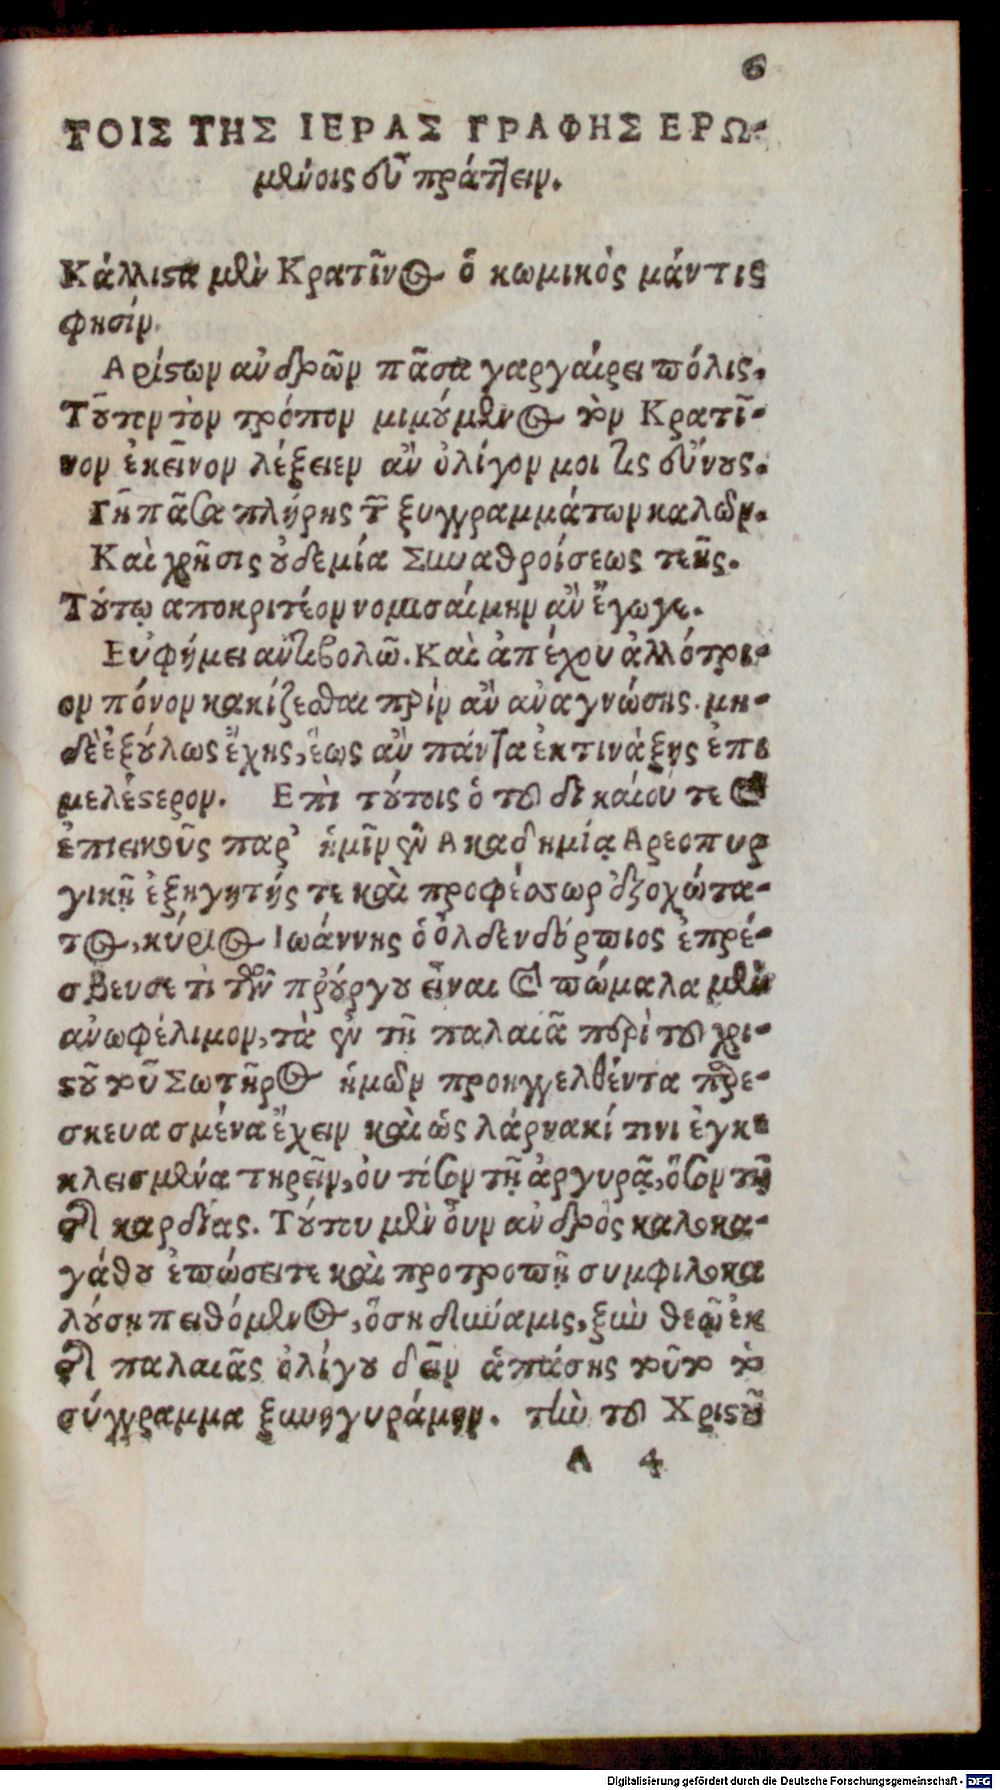 6
ΤΟΙΣ ΤΗΣ ΙΕΡΑΣ ΓΡΑΦΗΣ ΕΡΩ-
μένοις εὖ πράττειν.
Κάλλιστα μὲν Κρατῖνος ὁ κωμικὸς μάντις
φησίν.
Αρίστων ἀνδρῶν πᾶσα γαργαίρει πόλις.
Τοῦτον τὸν τρόπον μιμούμενος τὸν Κρατῖ-
νον ἐκεῖνον λέξειεν ἂν ὀλίγον μοι τις σύνους.
Γῆ πᾶσα πλήρης τῶν ξυγγραμμάτων καλῶν.
Καὶ χρῆσις οὐδεμία Συναθροίσεως τεῆς.
Τούτῳ αποκριτέον νομισαίμην ἂν ἔγωγε.
Εὐφήμει ἀντιβολῶ. Καὶ ἀπέχου ἀλλότρι-
ον πόνον κακίζεσθαι πρὶν ἂν ἀναγνώσης. μη-
δὲ ἐξούλως ἔχης, ἕως ἂν πάντα ἐκτινάξης ἐπι
μελέστερον. Επὶ τούτοις ὁ τοῦ δικαίου τε καὶ
ἐπιεικοῦς παρ' ἡμῖν ἐν Ακαδημίᾳ Αρεοπυρ
γικῇ ἐξηγητής τε καὶ προφέσσωρ ἐξοχώτα-
τος, κύριος Ιωάννης ὁ ὀλδενδόρπιος ἐπρέ-
σβευσέ τι τῶν προύργου εἶναι καὶ πώμαλα μὲν
ἀνωφέλιμον, τὰ ἐν τῇ παλαιᾷ περὶ τοῦ χρι-
στοῦ τοῦ Σωτῆρος ἡμῶν προηγγελθέντα παρε-
σκευασμένα ἔχειν καὶ ὡς λάρνακί τινι ἐγκ-
κλεισμένα τηρεῖν, οὐ τόσον τῇ ἀργυρᾷ, ὅσον τῇ
τῆς καρδίας. Τούτου μὲν οὖν ἀνδρὸς καλοκα-
γάθου ἐπώσει τε καὶ προτροπῇ συμφιλοκα
λούσῃ πειθόμενος, ὅση δύναμις, ξὺν θεῷ ἐκ
τῆς παλαιᾶς ὀλίγου δεῖν ἁπάσης τοῦτο τὸ
σύγγραμμα ξυνηγυράμην. τὴν τοῦ Χριστοῦ
Α 4
Digitalisierung gefördert durch die Deutsche Forschungsgemeinschaft - DFG